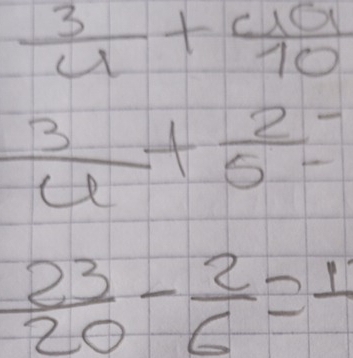 3/4 + 10
3/4 + 2/5 =
23/20 - 2/6 = 1